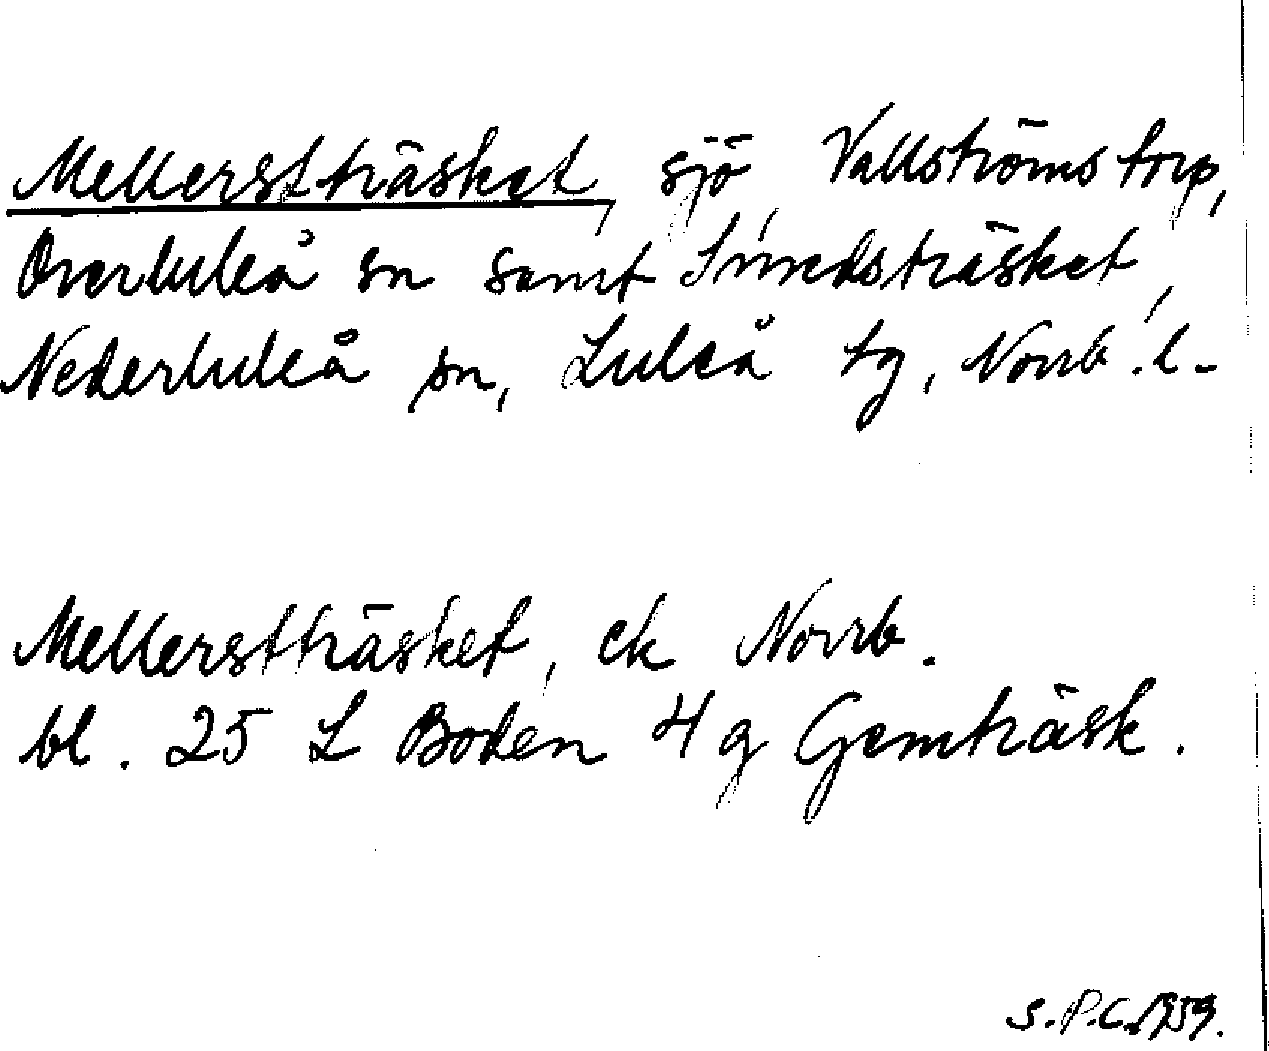 Mellersttträsket, sjö, Vallströmstorp,
Överluleå sn samt Smedsträsket,
Nederluleå sn, Luleå tg, Norrb. l.
Mellerstträsket, ek Norrb.
bl. 25 L Boden 4 g Gemträsk.
S.P.C. 1959.